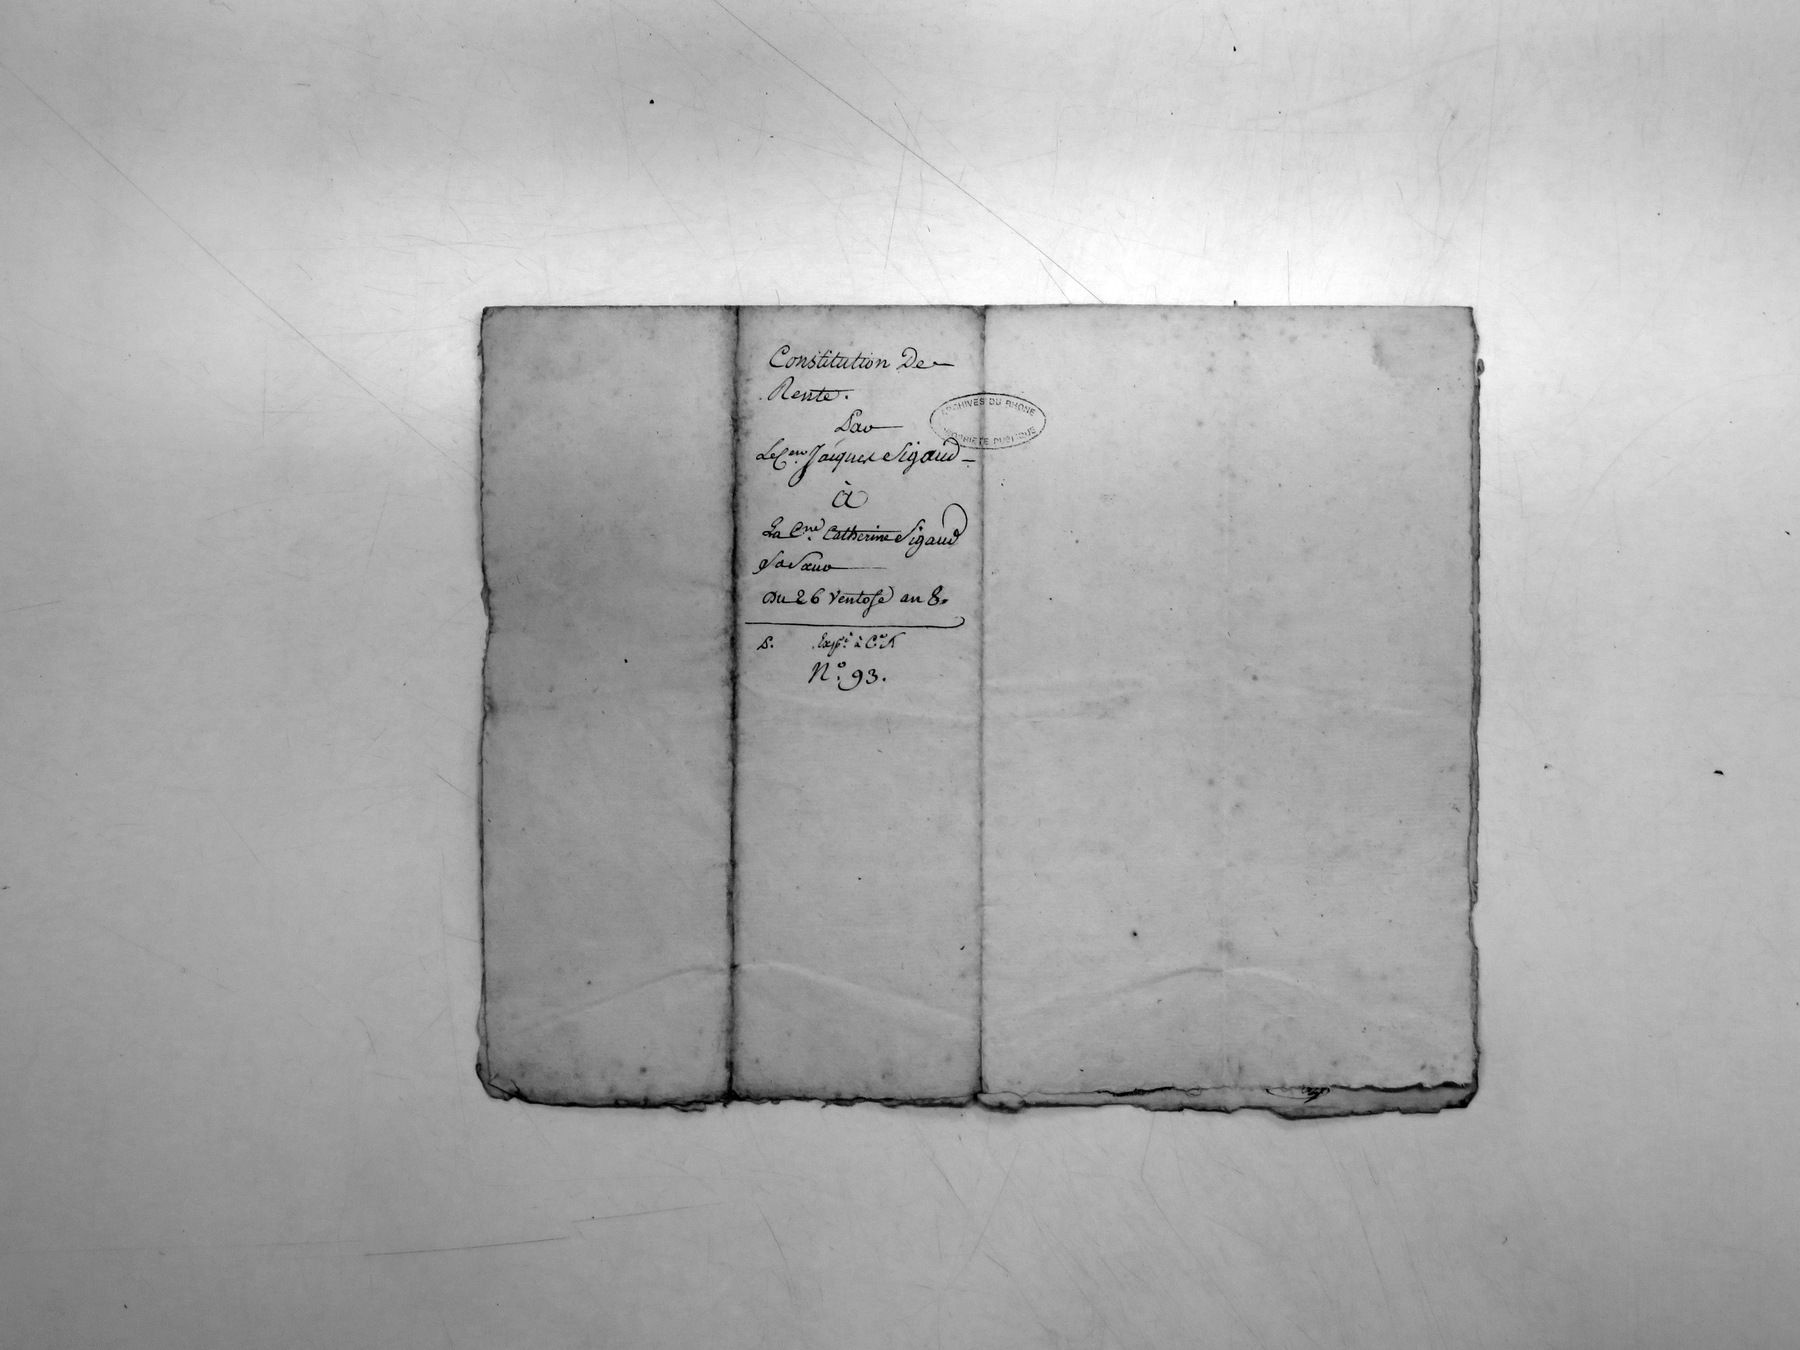 Constitution De
Rente.
Par
Le Cen. Jacques Sigaud
à
La Cne. Catherine Sigaud
Sa Sœur
Du 26 Ventose an 8.
Expé. à
N.º 93.
ARCHIVES DU RHONE
PROPRIETE PUBLIQUE